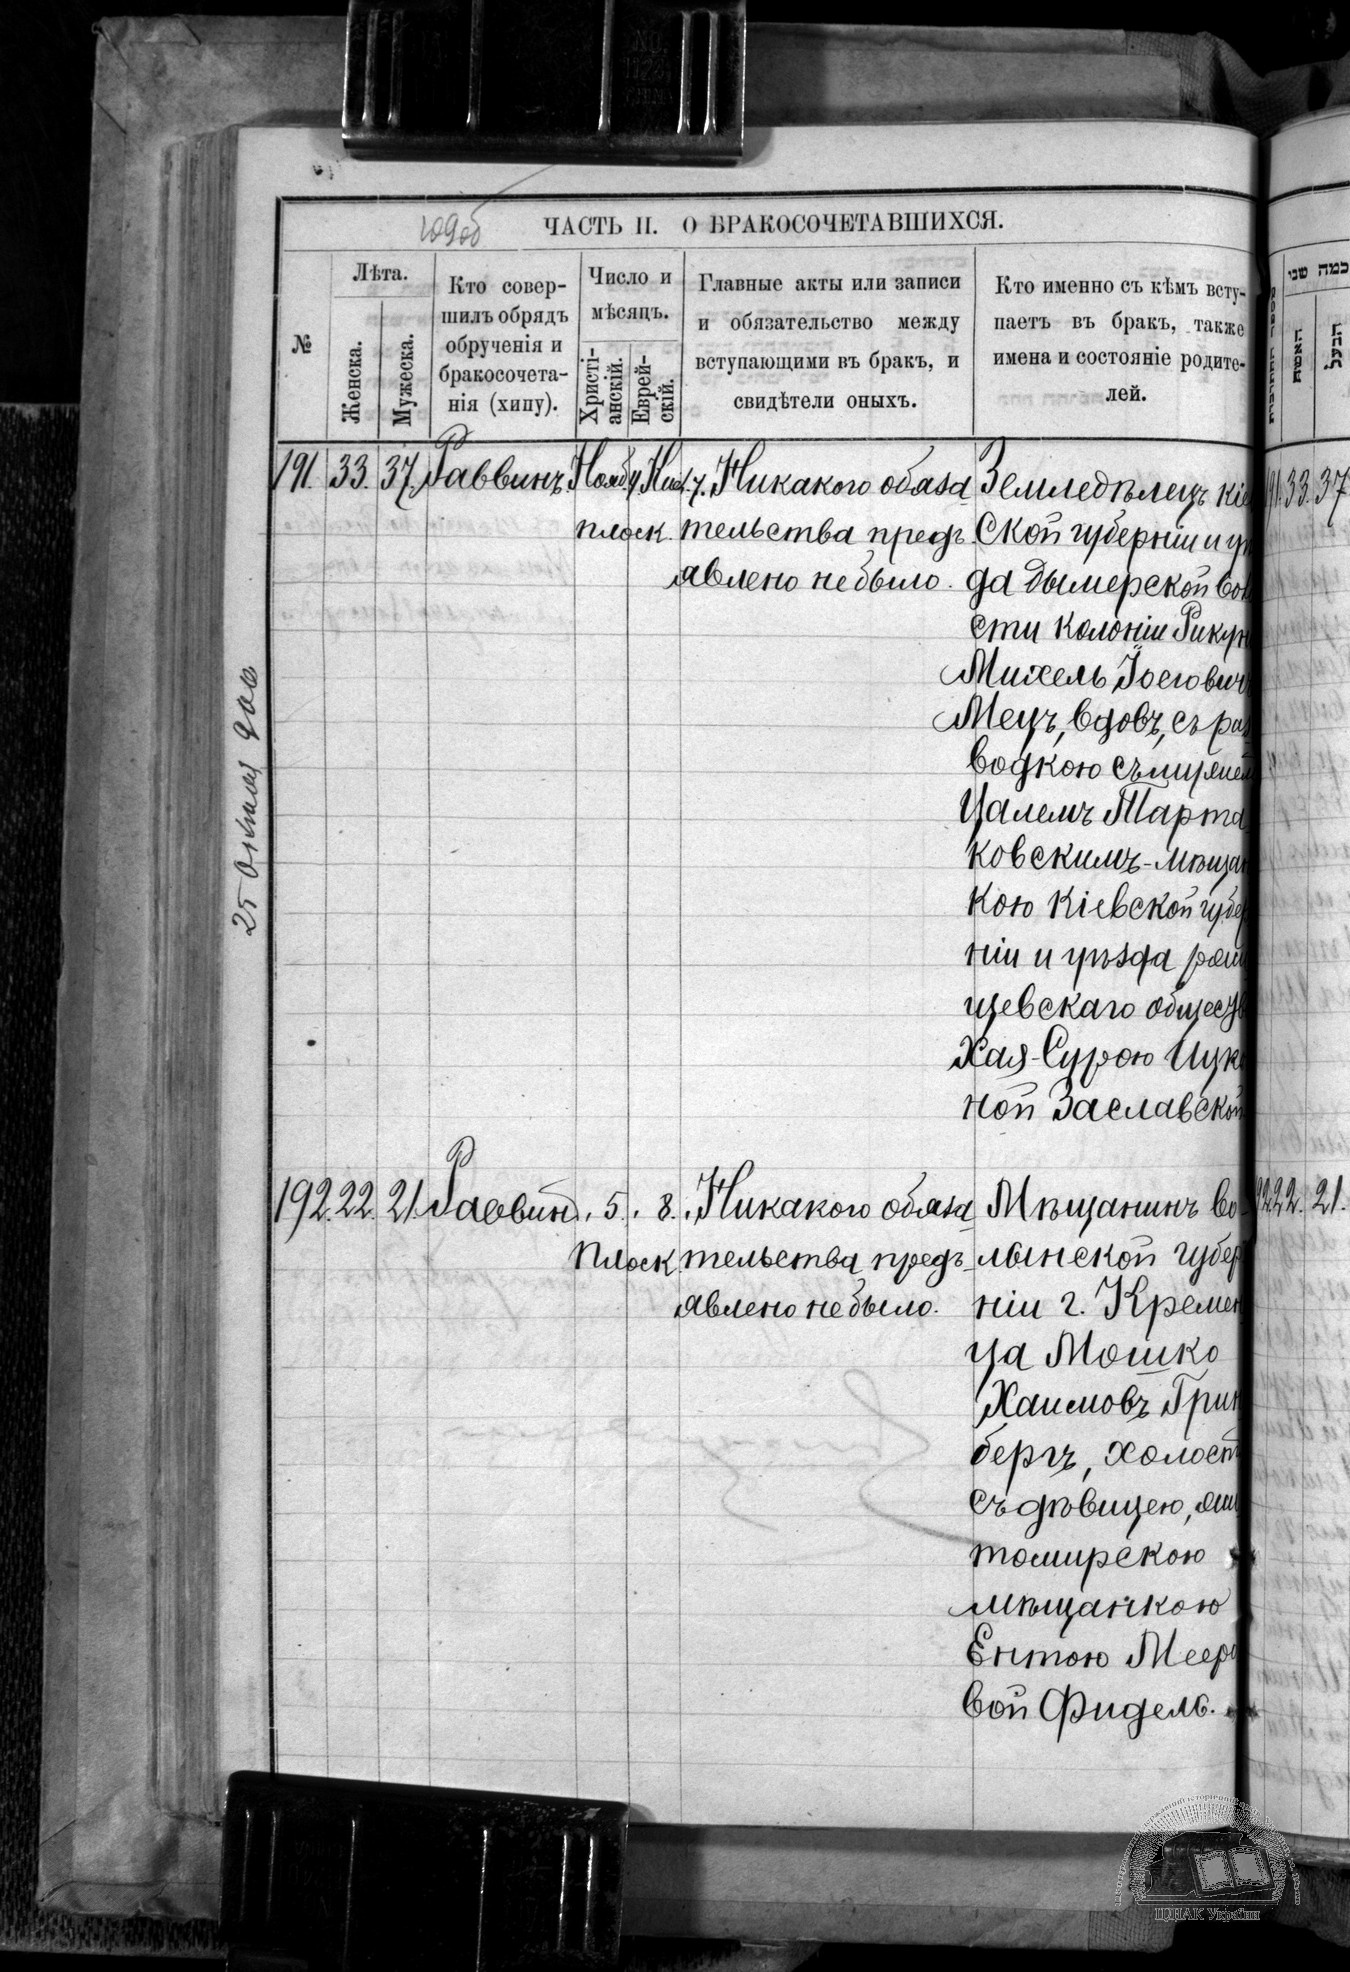 ЧАСТЬ II. О БРАКОСОЧЕТАВШИХСЯ.
109об
№
Лѣта.
Женска.
Мужеска.
Кто совер-
шилъ обрядъ
обрученія и
бракосочета-
нія (хипу).
Число и
мѣсяцъ.
Христі-
анскій.
Еврей-
скій.
Главные акты или записи
и обязательство между
вступающими въ бракъ, и
свидѣтели оныхъ.
Кто именно съ кѣмъ всту-
паетъ въ бракъ, также
имена и состояніе родите-
лей.
כמה שני
האשה
הבעל
191. 33. 37. Раввинъ
Плоск.
7. Никакого обяза
тельства предъ
явлено не было.
Земледѣлецъ кіе
ской губерніи и у
да дымерской вол
сти колоніи Рикун
Михель Іосіовичъ
Мецъ, вдовъ, съ раз
водкою съ
Цалемъ Тарта
ковскимъ - мѣщан
кою Кіевской губер
ніи и уѣзда
щевскаго общест
Хая-Сурою Ицко
ной Заславской
191. 33. 37
192. 22. 21. Раввин. 5. 8. Никакого обяза
Плоск. тельства предъ
явлено не было.
Мѣщанинъ Во-
лынской губер
ніи г. Кремен
ца Мошко
Хаимовъ Грин
бергъ, холост
съ дѣвицею, жи
томирскою
мѣщанкою
Ентою Мееро
вой Фидель.
192 22. 21.
ЦДІАК України